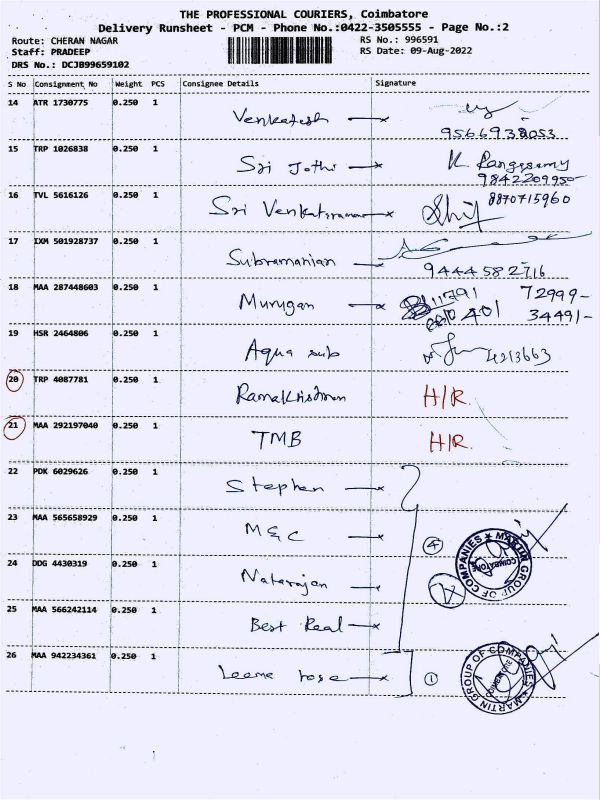 THE PROFESSIONAL COURIERS, Coimbatore
Delivery Runsheet - PCM - Phone No.:0422-3505555 - Page No.:2
Route: CHERAN NAGAR RS No.: 996591
Staff: PRADEEP RS Date: 09-Aug-2022
DRS No.: DCJB99659102
S No Consignment No Weight PCS Consignee Details Signature
14 ATR 1730775 0.250 1 Venkatesh
9566938053
15 TRP 1026838 0.250 1 Sri Jothi K Rangasamy
9842209950
16 TVL 5616126 0.250 1 Sri Venkatsraman 8870715960
17 IXM 501928737 0.250 1 Subramanian
9444582716
18 MAA 287448603 0.250 1 Murugan 11791 72999-
401 34491-
19 HSR 2464806 0.250 1 Aqua sub 4213663
20 TRP 4087781 0.250 1 Ramakrishnan H/R.
21 MAA 292197040 0.250 1 TMB H/R.
22 PDK 6029626 0.250 1 Stephen
23 MAA 565658929 0.250 1 M&C
4
MARTIN GROUP OF COMPANIES
COIMBATORE
24 DDG 4430319 0.250 1 Natarajan
25 MAA 566242114 0.250 1 Best Real
26 MAA 942234361 0.250 1 Leema rose 1
MARTIN GROUP OF COMPANIES
COIMBATORE